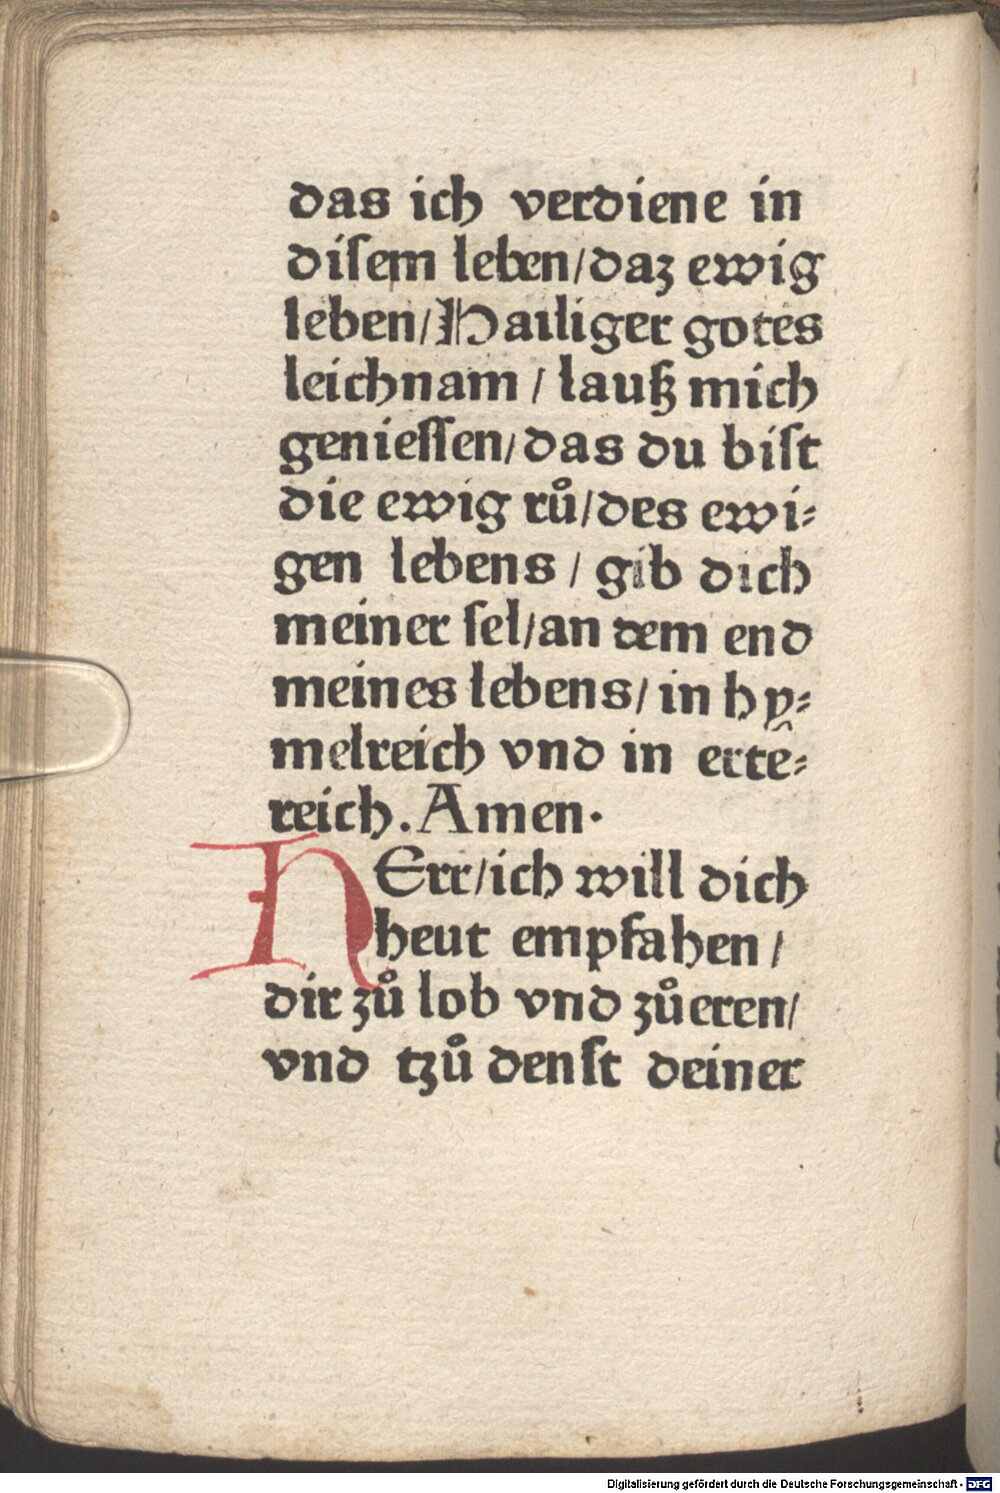 das ich verdiene in
diſem leben/daz ewig
leben/Hailiger gotes
leichnam / lauſz mich
genieſſen/das du biſt
die ewig ruͦ/des ewi⸗
gen lebens / gib dich
meiner ſel/an dem end
meines lebens/ in hy⸗
melreich vnd in ertē⸗
reich. Amen.
HErr/ich will dich
heut empfahen /
dir zuͦ lob vnd zuͦeren/
vnd tzuͦ denſt deiner
Digitalisierung gefördert durch die Deutsche Forschungsgemeinschaft - DFG